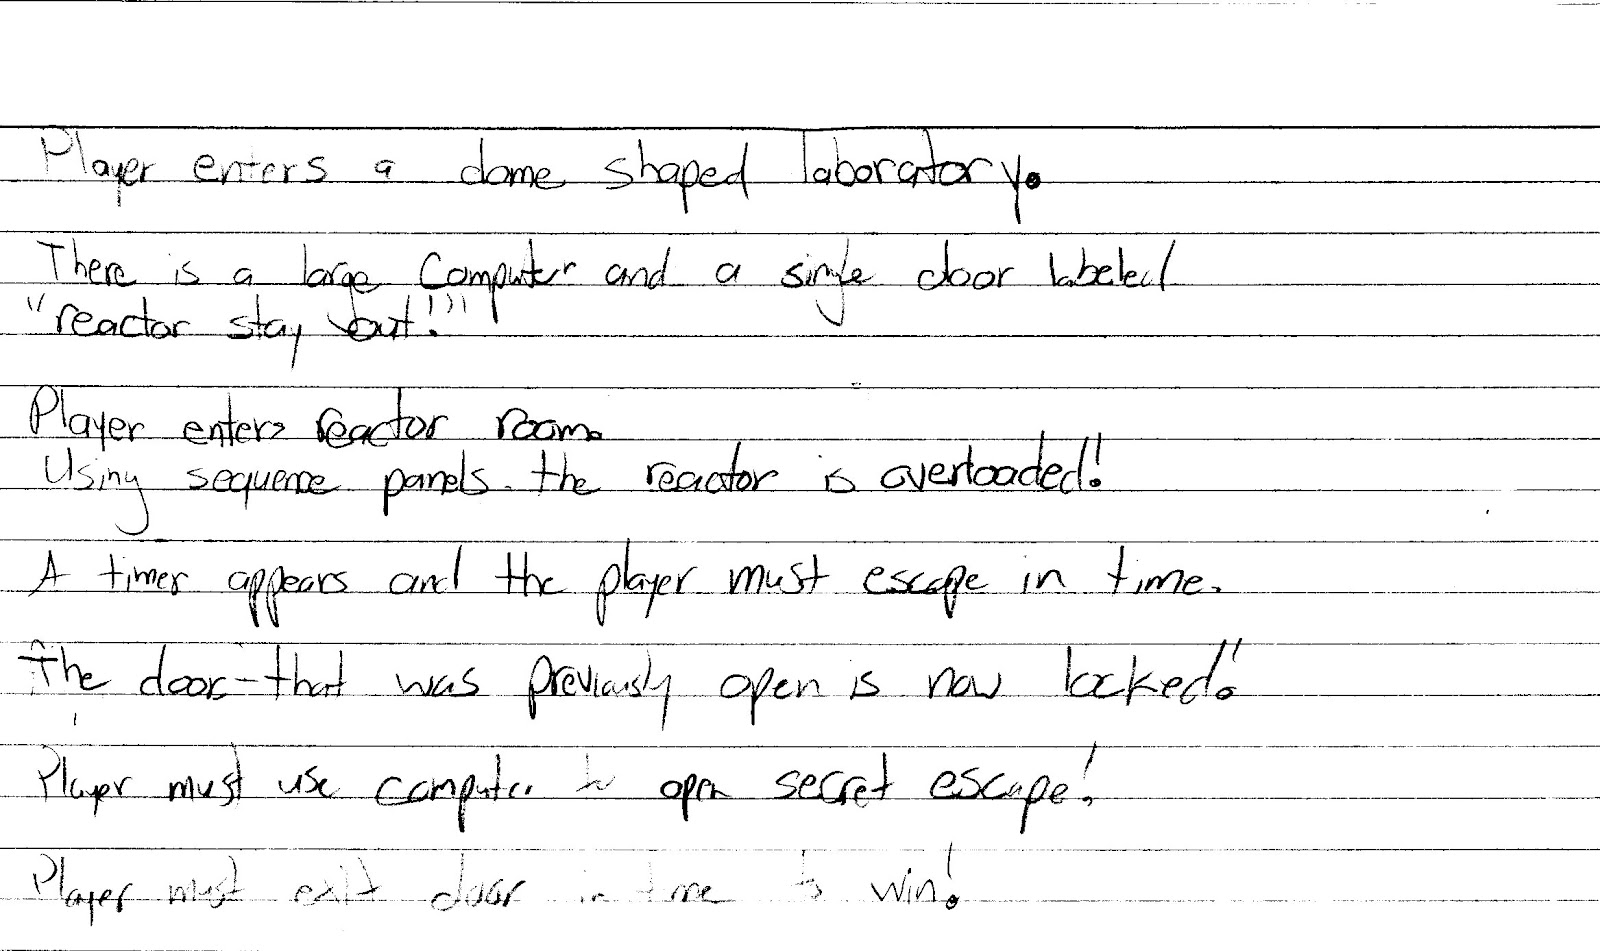 Player enters a dome shaped laboratory.
There is a large Computer and a single door labeled
"reactor stay out!"
Player enters reactor room.
Using sequence panels the reactor is overloaded!
A timer appears and the player must escape in time.
The door that was previously open is now locked!
Player must use computer to open secret escape!
Player must exit door in time to win!